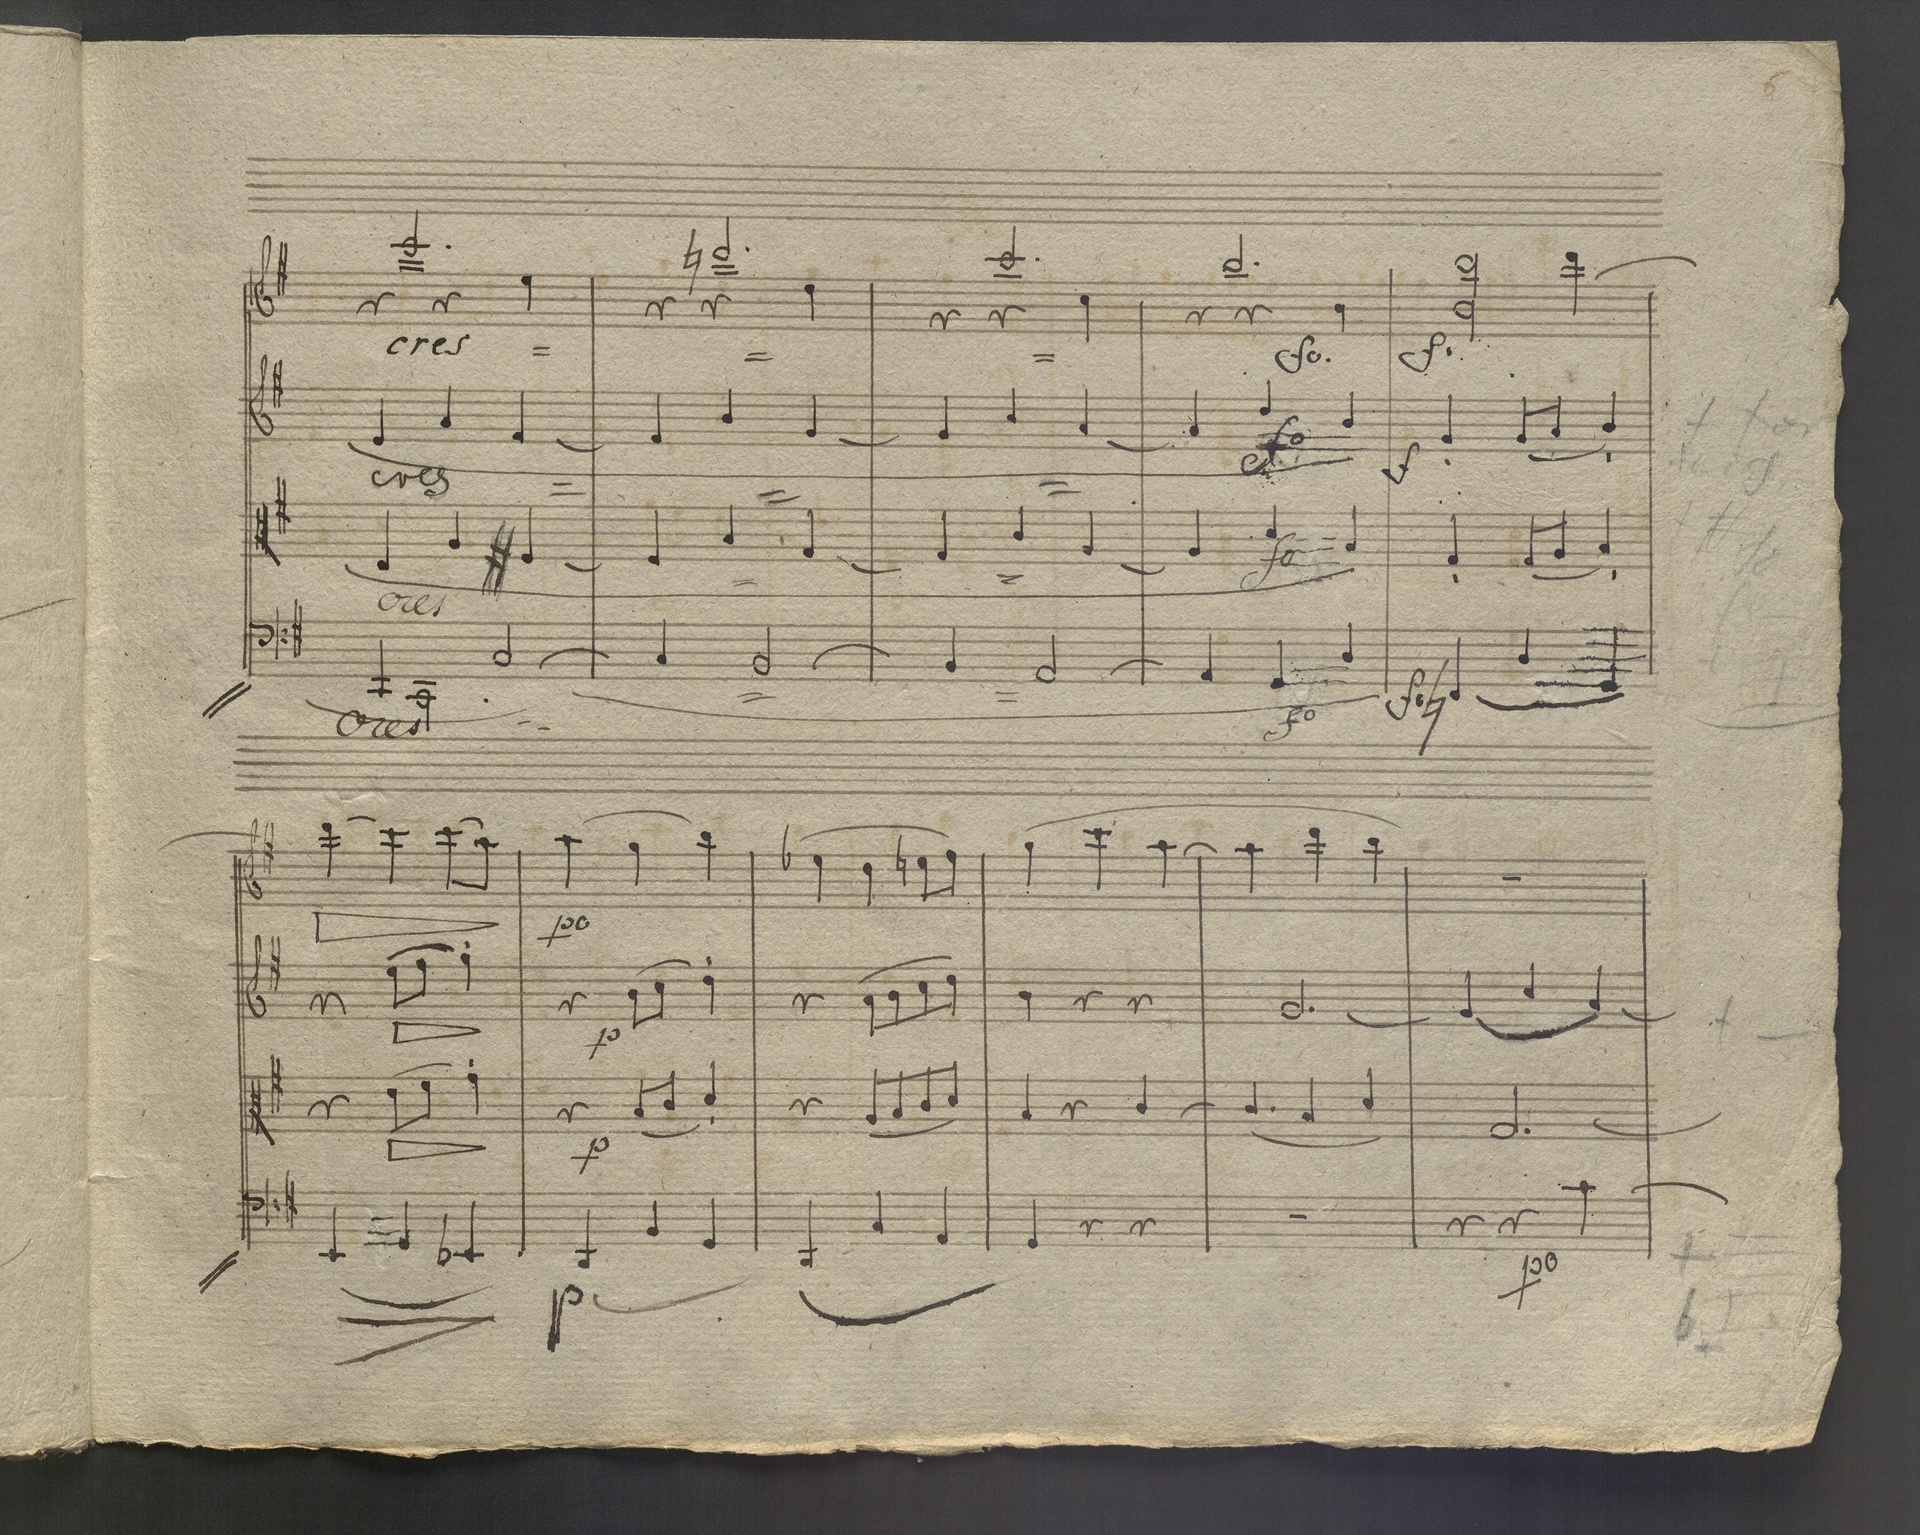 6
cres = = = fo. f.
cres = = = fo f
cres = = fo
cres -- = = fo fo
po
p
p
p po